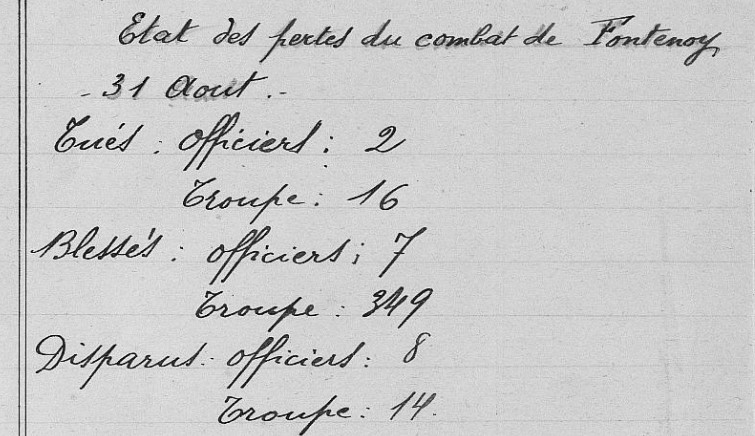 Etat des pertes du combat de Fontenoy
- 31 Aout.-
Tués : officiers : 2
Troupe : 16
Blessés : officiers ; 7
Troupe : 349
Disparus : officiers : 8
Troupe : 14.